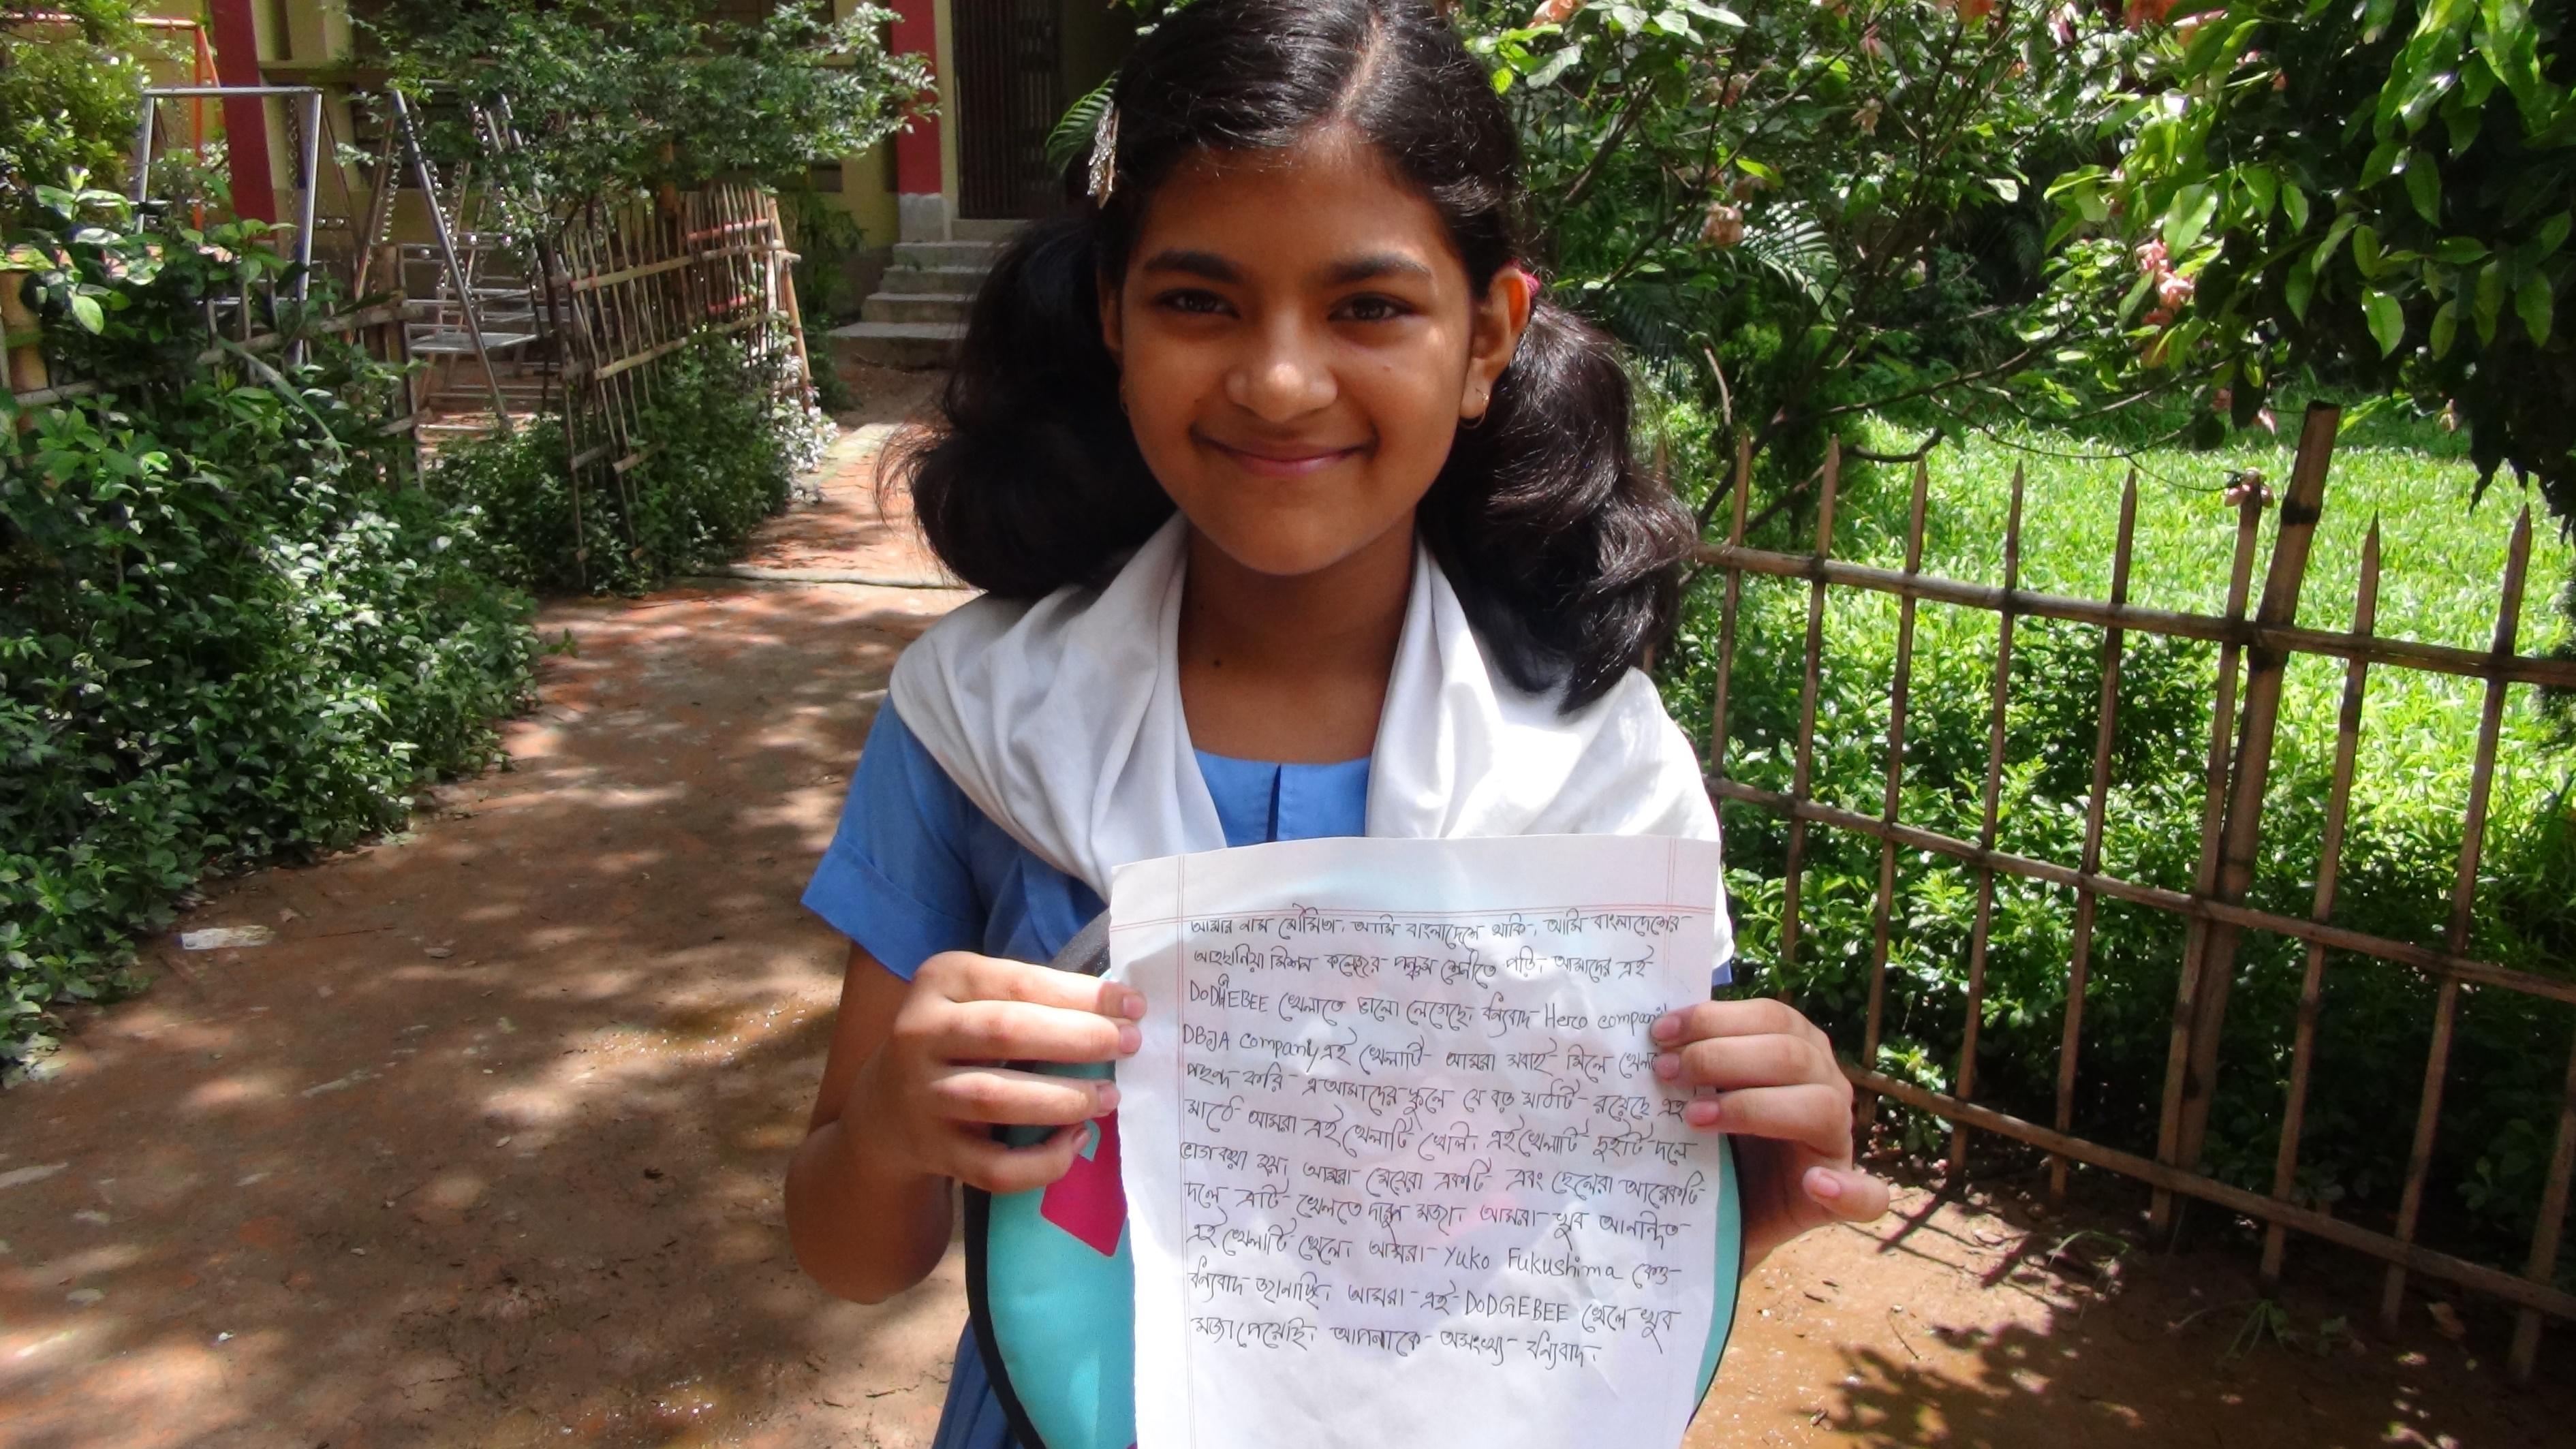 আমার নাম মৌমিতা। আমি বাংলাদেশে থাকি। আমি বাংলাদেশের
আহছানিয়া মিশন কলেজের পঞ্চম শ্রেনীতে পড়ি। আমাদের এই
DODGEBEE খেলাতে ভালো লেগেছে। ধন্যবাদ Hero company
DBJA company এই খেলাটি আমরা সবাই মিলে
পছন্দ করি এ আমাদের স্কুলে যে বড় মাঠটি রয়েছে এই
মাঠে আমরা এই খেলাটি খেলি। এই খেলাটি দুইটি দলে
ভাগ করা হয়। আমরা মেয়েরা একটি এবং ছেলেরা আরেকটি
দলে এটি খেলতে দারুন মজা। আমরা খুব আনন্দিত
এই খেলাটি খেলে। আমরা Yuko Fukushima কেও
ধন্যবাদ জানাচ্ছি। আমরা এই DODGEBEE খেলে খুব
মজা পেয়েছি। আপনাকে অসংখ্য ধন্যবাদ।